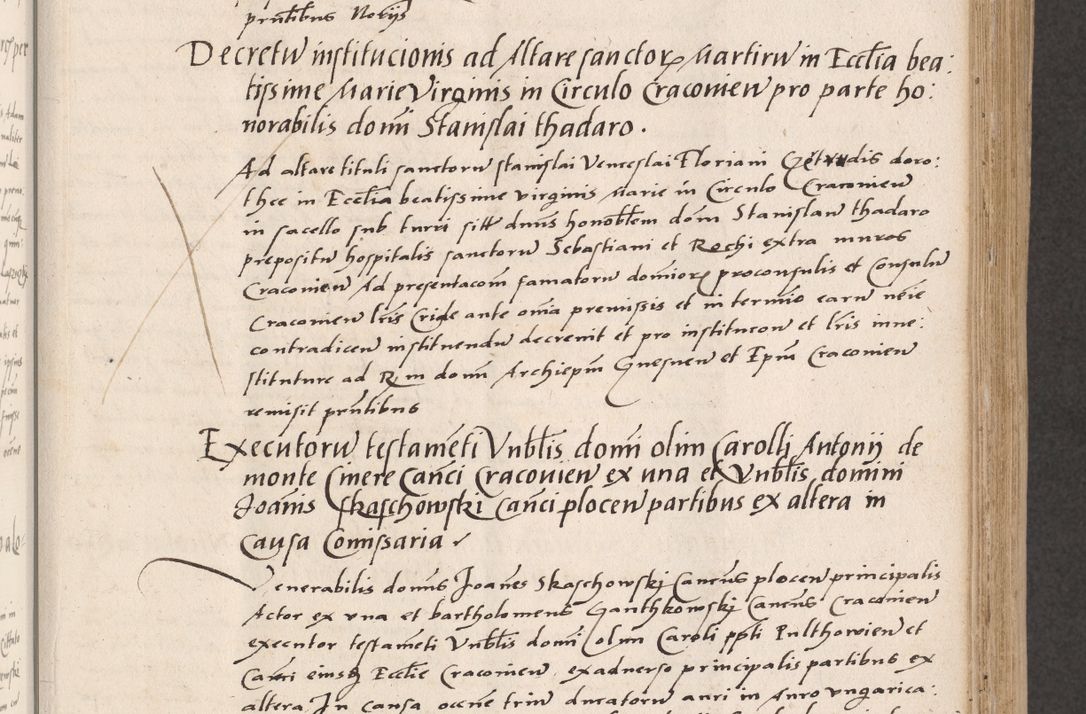 prntibus Norijs
Decretu institucionis ad Altare sanctor Martiru in Ecclia bea:
tissime Marie Virginis in Circulo Cracovien pro parte ho:
norabilis domi Stanislai thadaro.
Ad altare tituli sanctoru stanislai Venceslai Floriani doro:
thee in Ecclia beatissime virginis Marie in Circulo Cracovien
in sacello sub turri sitt dnus honobtem dom Stanislau thadaro
prepositu hospitalis sanctoru Sebastiani et Rochi extra muros
Cracovien Ad presentacom famatoru dominor proconsulis et Consulu
Cracovien lris Cride ante omia premissis et in termio earu neie
contradicen instituendu decrevit et pro institucon et lris inve:
stiture ad Rm dom Archiepm Gnesnen et Epm Cracovien
remisit prntibus
Executoru testameti Vnblis domi olim Carolli Antonij de
monte Cinere Canci Cracovien ex una et Vnblis domini
Joanis Skaschowski Canci plocen partibus ex altera in
causa Comissaria
Venerabilis domus Joanes Skaschowskj Cancus plocen principalis
Actor ex vna et bartholomeus Ganthkowskj Cancus Cracovien
executor testameti Vnblis domi olym Caroli ppti Pulthovien et
Canci eiusq Ecclie Cracovien exadverso principalis partibus ex
altera In causa occne triu ducatoru auri in Auro vngarica: